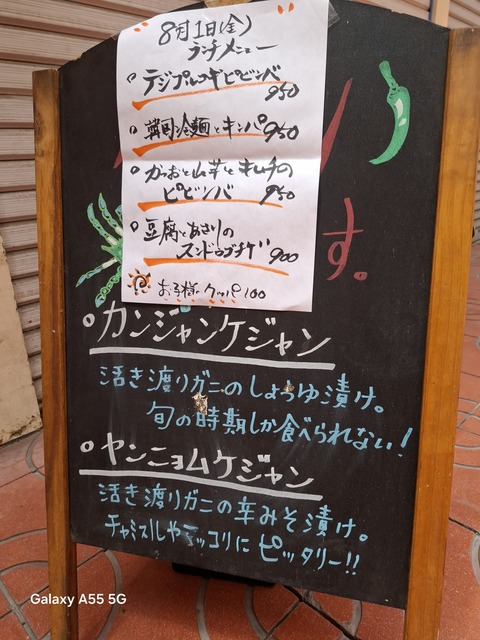 8月1日(金)
ランチメニュー
テジプルコギビビンバ
950
韓国冷麺とキンパ 950
かつおと山芋とキムチの
ビビンバ 950
豆腐とあさりの
スンドゥブチゲ 900
お子様クッパ 100
す。
カンジャンケジャン
活き渡りガニのしょうゆ漬け。
旬の時期しか食べられない!
ヤンニョムケジャン
活き渡りガニの辛みそ漬け。
チャミスルやマッコリにピッタリー!!
Galaxy A55 5G